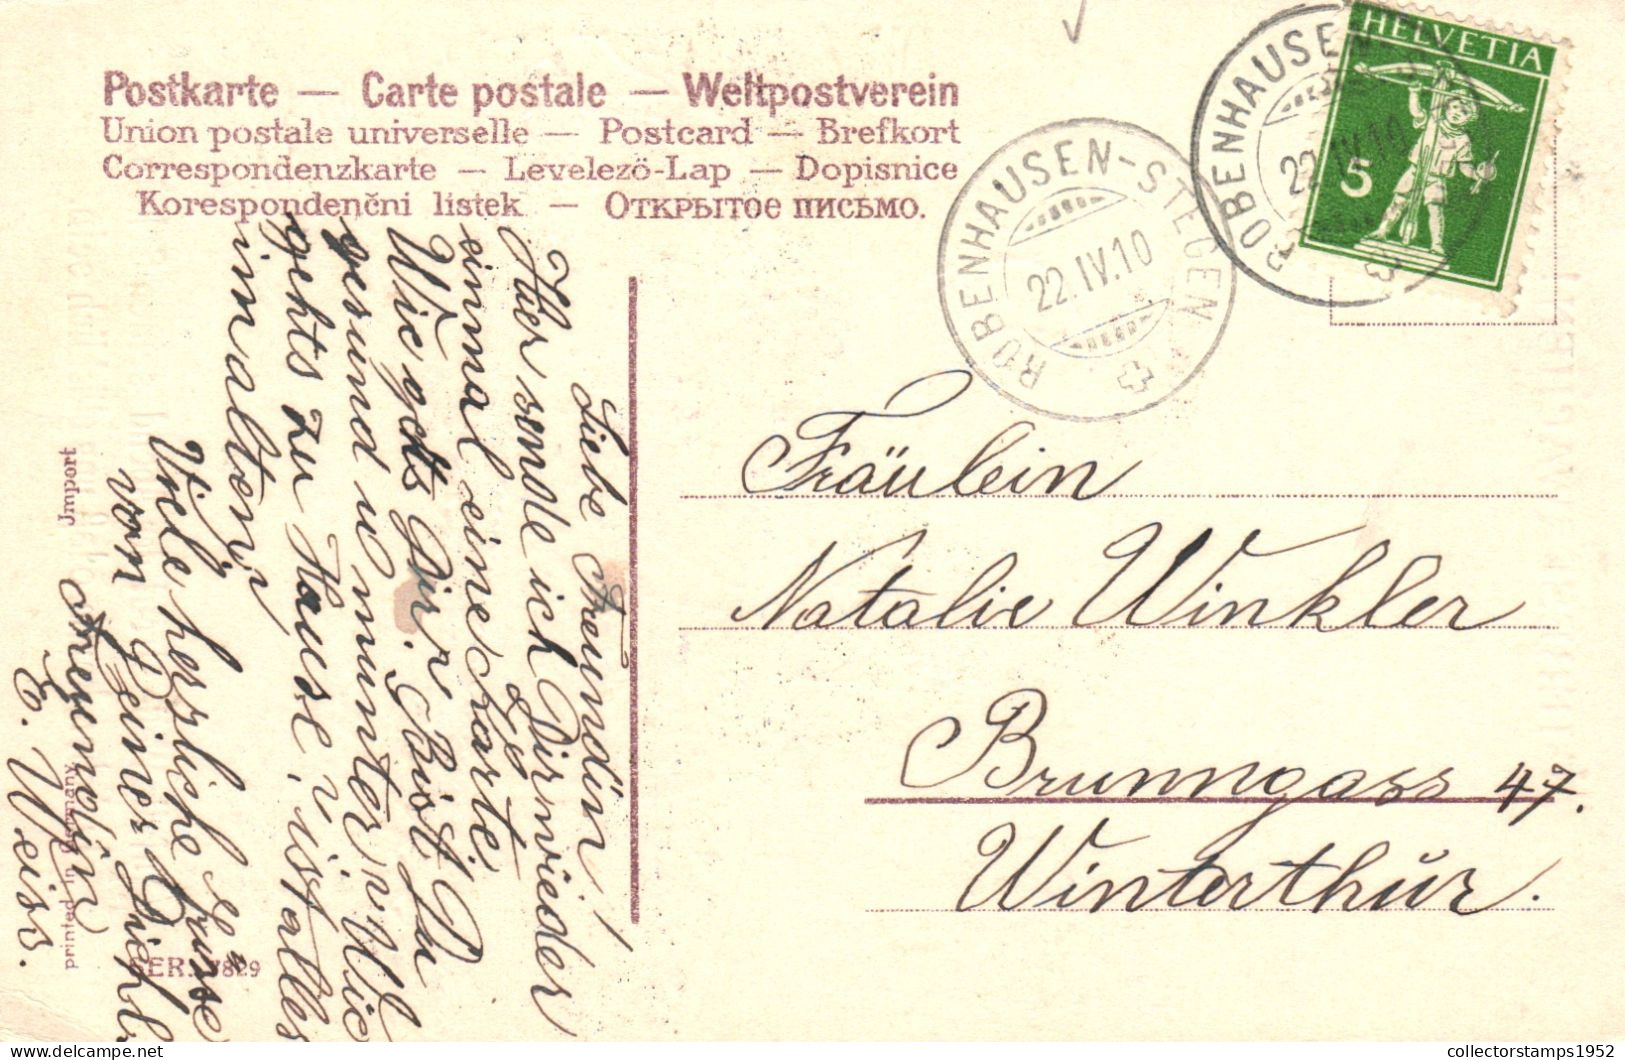 Postkarte — Carte postale — Weltpostverein
Union postale universelle — Postcard — Brefkort
Correspondenzkarte — Levelező-Lap — Dopisnice
Korespondenční listek — Открытое письмо.
HELVETIA
5
ROBENHAUSEN-STEGEN
22.IV.10
ROBENHAUSEN-S
22.IV.10
Liebe Freundin!
Hier sende ich Dir wieder
einmal eine Karte
Wie gehts Dir. Bist Du
gesund u munter, Wie
gehts zu Hause, ist alles
im alten,
Viele herzliche Grüsse
von Deiner Dich
Freundin
E. Weiss.
Fräulein
Natalie Winkler
Brunngass 47.
Winterthŭr.
Import
printed in Germany
SER. 7829
collectorstamps1952